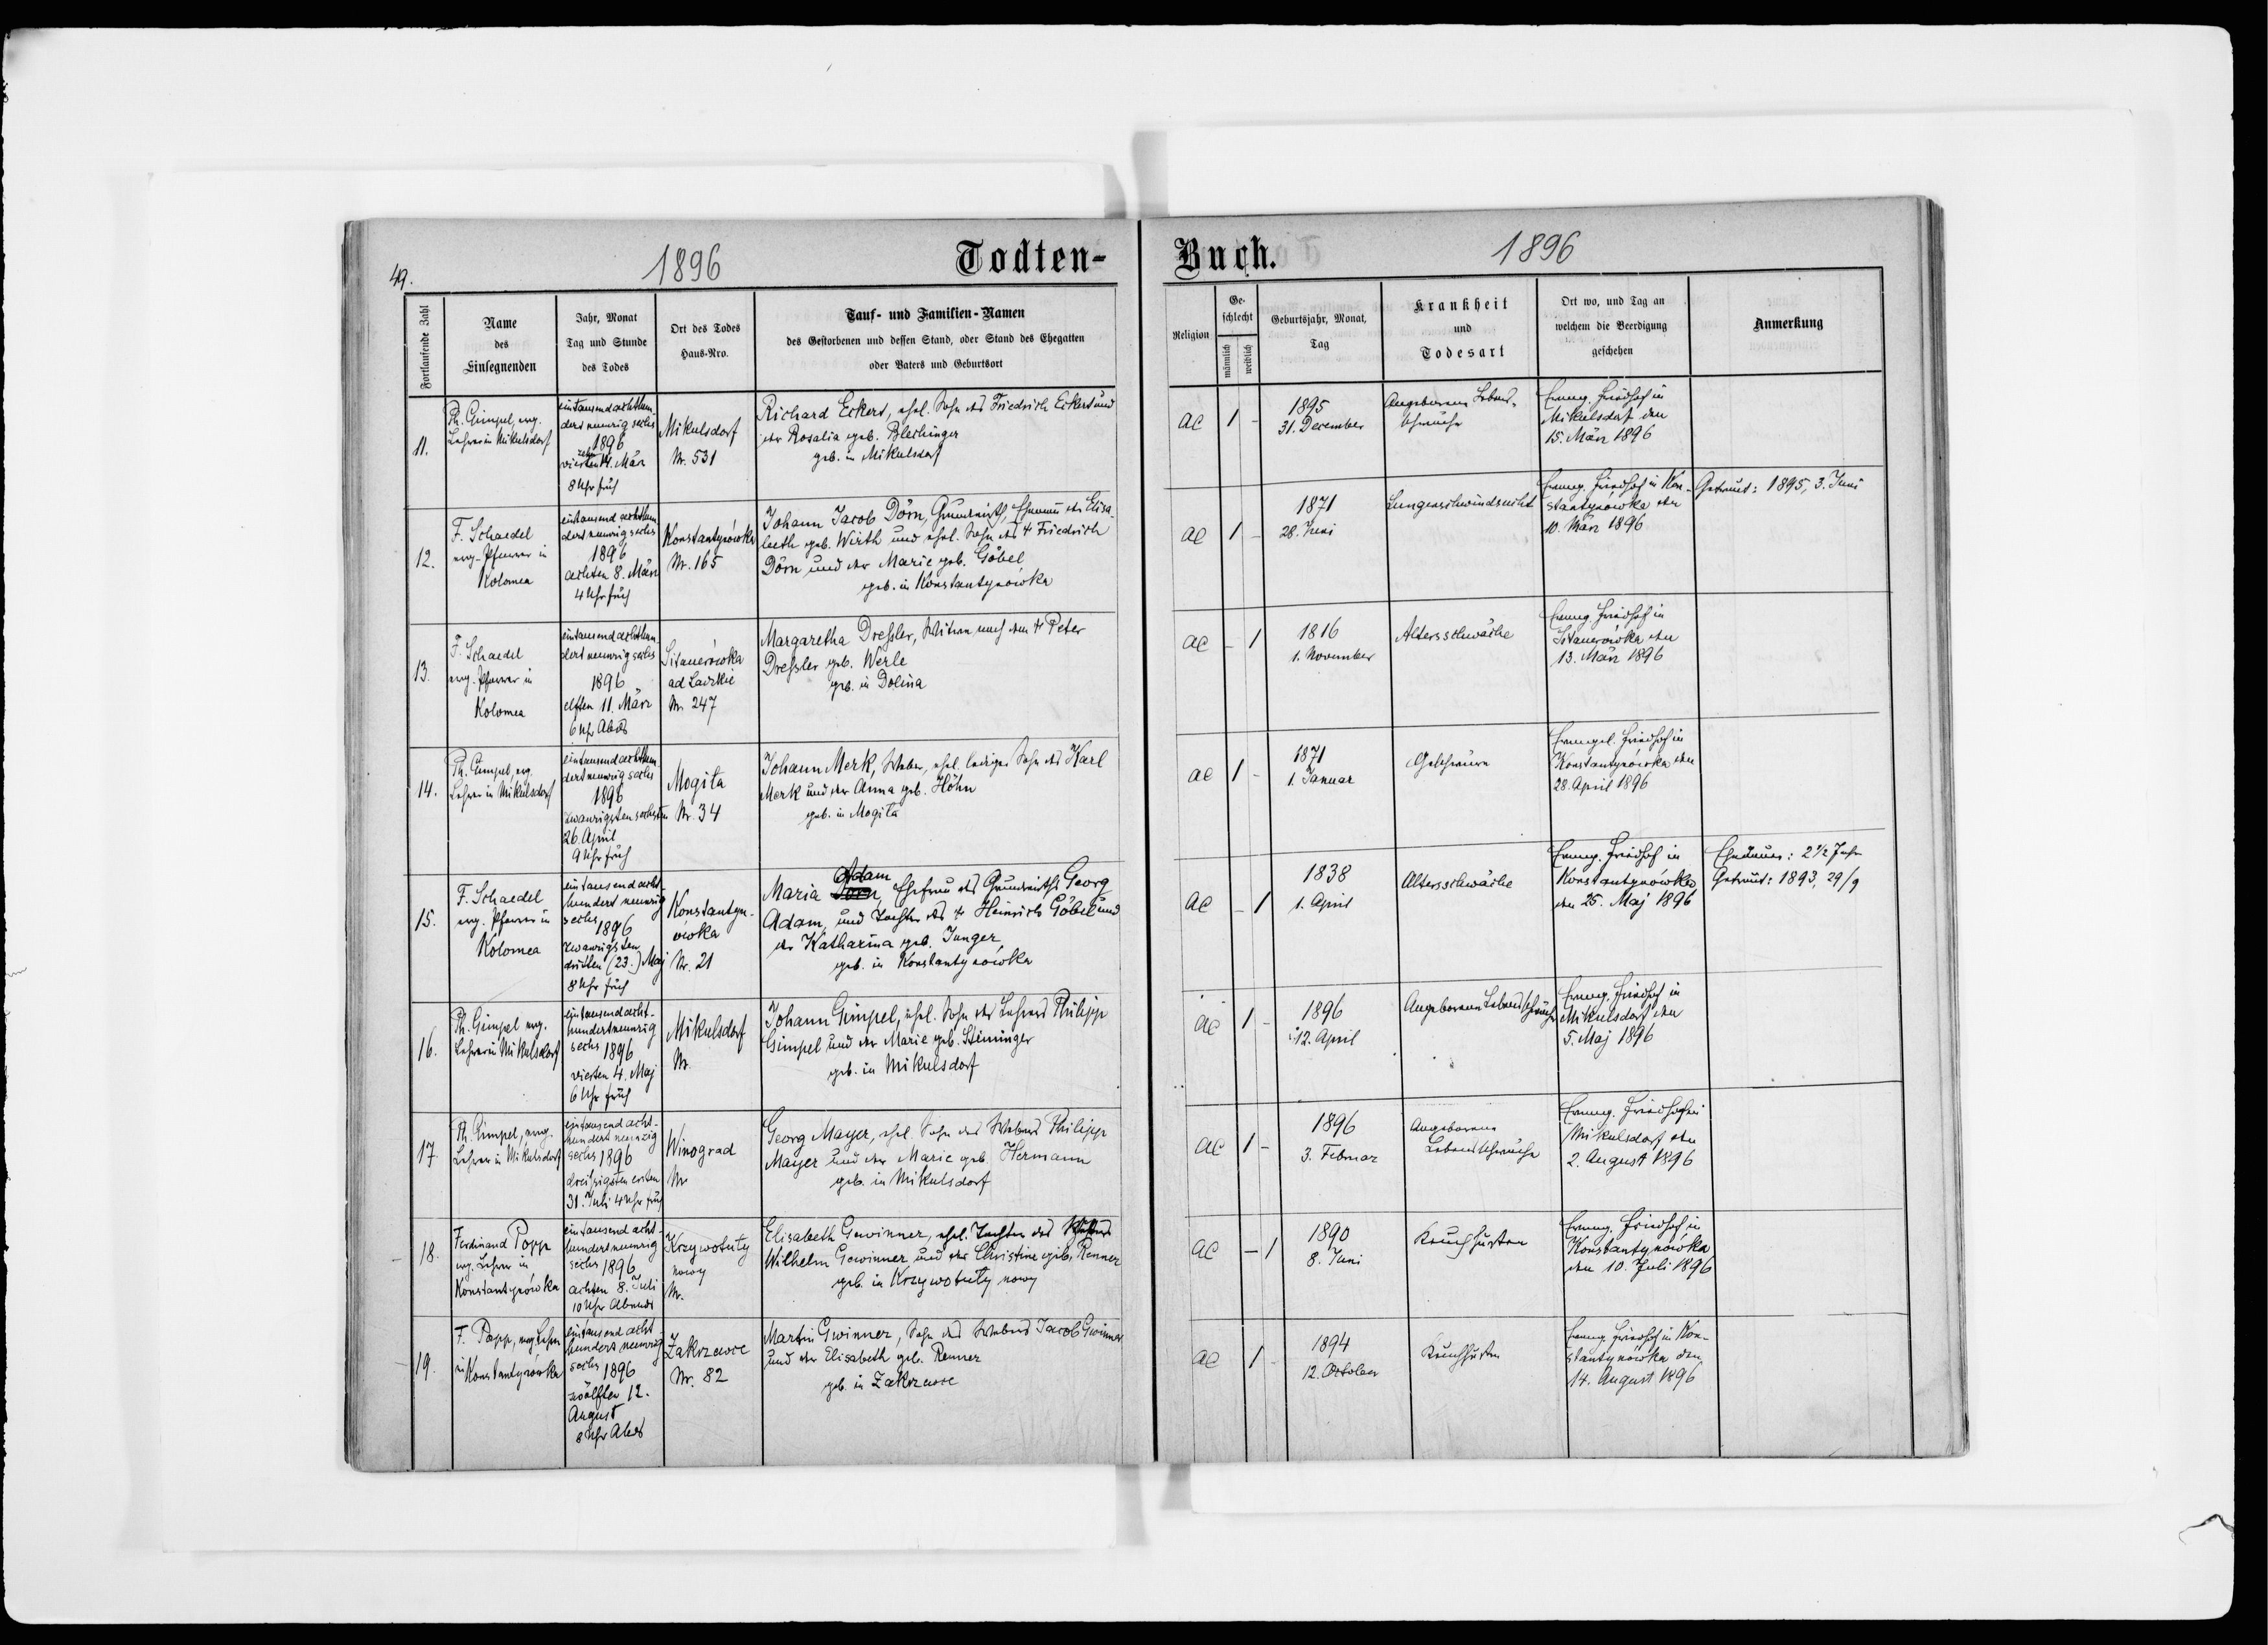 49.
1896
Todten-
Buch.
1896
Fortlaufende Zahl
Name
des
Einsegnenden
Jahr, Monat
Tag und Stunde
des Todes
Ort des Todes
Haus-Nro.
Tauf- und Familien-Namen
des Gestorbenen und dessen Stand, oder Stand des Ehegatten
oder Vaters und Geburtsort
Religion
Ge-
schlecht
männlich
weiblich
Geburtsjahr, Monat,
Tag
Krankheit
und
Todesart
Ort wo, und Tag an
welchem die Beerdigung
geschehen
Anmerkung
11.
Ph. Gimpel, evg.
Lehrer in Mikulsdorf
eintausendachthun-
dert neunzig sechs
1896
zehn
vierten 14. März
8 Uhr früh
Mikulsdorf
Nr. 531
Richard Eckert, ehel. Sohn des Friedrich Eckert und
der Rosalia geb. Blechinger
geb. in Mikulsdorf
AC
1
-
1895
31. December
Angeborene Lebens-
schwäche
Evang. Friedhof in
Mikulsdorf den
15. März 1896
12.
F. Schaedel
evg. Pfarrer in
Kolomea
eintausend achthun-
dert neunzig sechs
1896
achten 8. März
4 Uhr früh
Konstantynówka
Nr. 165
Johann Jacob Dörn, Grundwirth, Ehemann der Elisa-
beth geb. Wirth und ehel. Sohn des † Friedrich
Dörn und der Marie geb. Göbel
geb. in Konstantynówka
AC
1
-
1871
28. Juni
Lungenschwindsucht
Evang. Friedhof in Kon-
stantynówka den
10. März 1896
Getraut: 1895, 3. Juni
13.
F. Schaedel
evg. Pfarrer in
Kolomea
eintausendachthun-
dert neunzig sechs
1896
elften 11. März
6 Uhr Abds
Sitauerówka
ad Laczkie
Nr. 247
Margaretha Dreßler, Witwe nach dem † Peter
Dreßler geb. Werle
geb. in Dolina
AC
-
1
1816
1. November
Altersschwäche
Evang. Friedhof in
Sitauerówka den
13. März 1896
14.
Ph. Gimpel, evg.
Lehrer in Mikulsdorf
eintausendachthun-
dert neunzig sechs
1896
zwanzigsten sechsten
26. April
9 Uhr früh
Mogiła
Nr. 34
Johann Merk, Weber, ehel. lediger Sohn des Karl
Merk und der Anna geb. Höhn
geb. in Mogiła
AC
1
-
1871
1. Januar
Geschwüre
Evangel. Friedhof in
Konstantynówka den
28. April 1896
15.
F. Schaedel
evg. Pfarrer in
Kolomea
eintausend acht-
hundert neunzig
sechs 1896
zwanzigsten
dritten (23.) Maj
8 Uhr früh
Konstantyn-
owka
Nr. 21
Adam
Maria Dörn, Ehefrau des Grundwirths Georg
Adam, und Tochter des † Heinrich Göbel und
der Katharina geb. Junger,
geb. in Konstantynówka
AC
-
1
1838
1. April
Altersschwäche
Evang. Friedhof in
Konstantynówka
den 25. Maj 1896
Ehedauer: 2 1/2 Jahr
Getraut: 1893, 29/9
16.
Ph. Gimpel evg.
Lehrer in Mikulsdorf
eintausend acht-
hundert neunzig
sechs 1896
vierten 4. Maj
6 Uhr früh
Mikulsdorf
Nr.
Johann Gimpel, ehel. Sohn des Lehrers Philipp
Gimpel und der Marie geb. Steininger
geb. in Mikulsdorf
AC
1
-
1896
12. April
Angeborene Lebensschwäche
Evang. Friedhof in
Mikulsdorf den
5. Maj 1896
17.
Ph. Gimpel, evg.
Lehrer in Mikulsdorf
eintausend acht-
hundert neunzig
sechs 1896
dreißigsten ersten
31. Juli 4 Uhr früh
Winograd
Nr
Georg Mayer, ehel. Sohn des Webers Philipp
Mayer und der Marie geb. Hermann
geb. in Mikulsdorf
AC
1
-
1896
3. Februar
Angeborene
Lebensschwäche
Evang. Friedhof in
Mikulsdorf den
2. August 1896
18.
Ferdinand Popp
evg. Lehrer in
Konstantynówka
eintausend acht-
hundert neunzig
sechs 1896
achten 8. Juli
10 Uhr Abends
Krzywotuły
nowy
Nr.
Elisabeth Gewinner, ehel. Tochter des
Wilhelm Gewinner und der Christine geb. Renner
geb. in Krzywotuły nowy
AC
-
1
1890
8. Juni
Keuchhusten
Evang. Friedhof in
Konstantynówka
den 10. Juli 1896
19.
F. Popp, evg. Lehrer
in Konstantynówka
eintausend acht-
hundert neunzig
sechs 1896
zwölften 12.
August
8 Uhr Abds
Zakrzewce
Nr. 82
Martin Gwinner, Sohn des Webers Jacob Gwinner
und der Elisabeth geb. Renner
geb. in Zakrzewce
AC
1
-
1894
12. October
Keuchhusten
Evang. Friedhof in Kon-
stantynówka den
14. August 1896